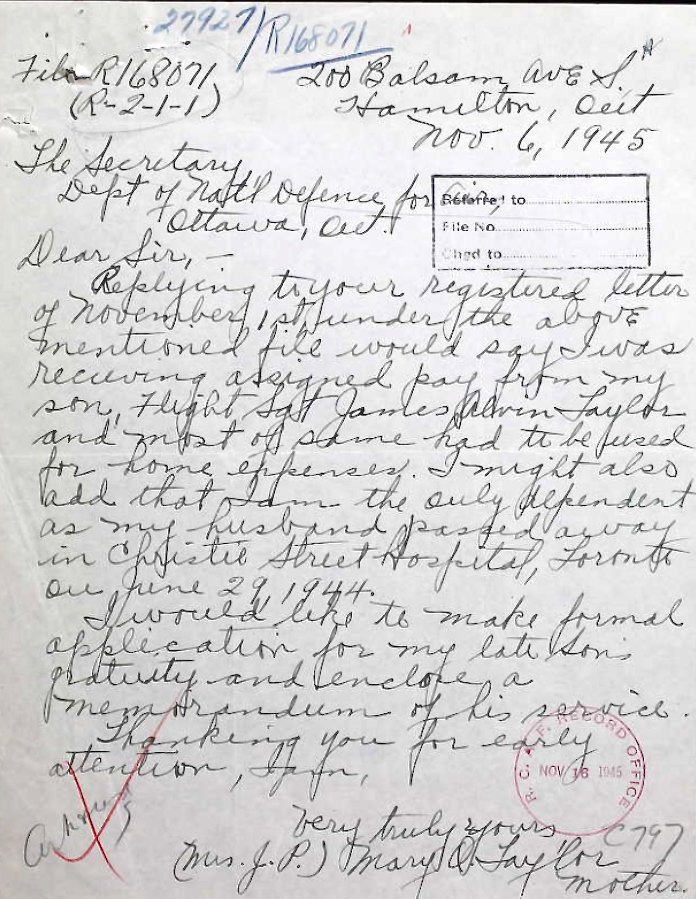 27927/R168071
File R168071
(R-2-1-1)
200 Balsam AvE S.
Hamilton, Ont
Nov. 6, 1945
The Secretary
Dept of Nat'l Defence for Air,
Ottawa, Ont.
Referred to
File No
Chgd to
Dear Sir, —
Replying to your registered letter
of November 1st, under the abovE
mentioned file would say I was
recieving assigned pay from my
son, Flight Sgt James Alvin Taylor
and most of same had to be used
for home expenses. I might also
add that I am the only dependent
as my husband passed away
in Christie Street Hospital, Toronto
on June 29, 1944.
I would like to make formal
application for my late son's
gratuity and enclose a
memorandum of his service.
Thanking you for early
attention, I am,
R.C.A.F. RECORD OFFICE
NOV 13 1945
Very truly yours
C797
(Mrs. J. P.) Mary Q. Taylor
Mother.